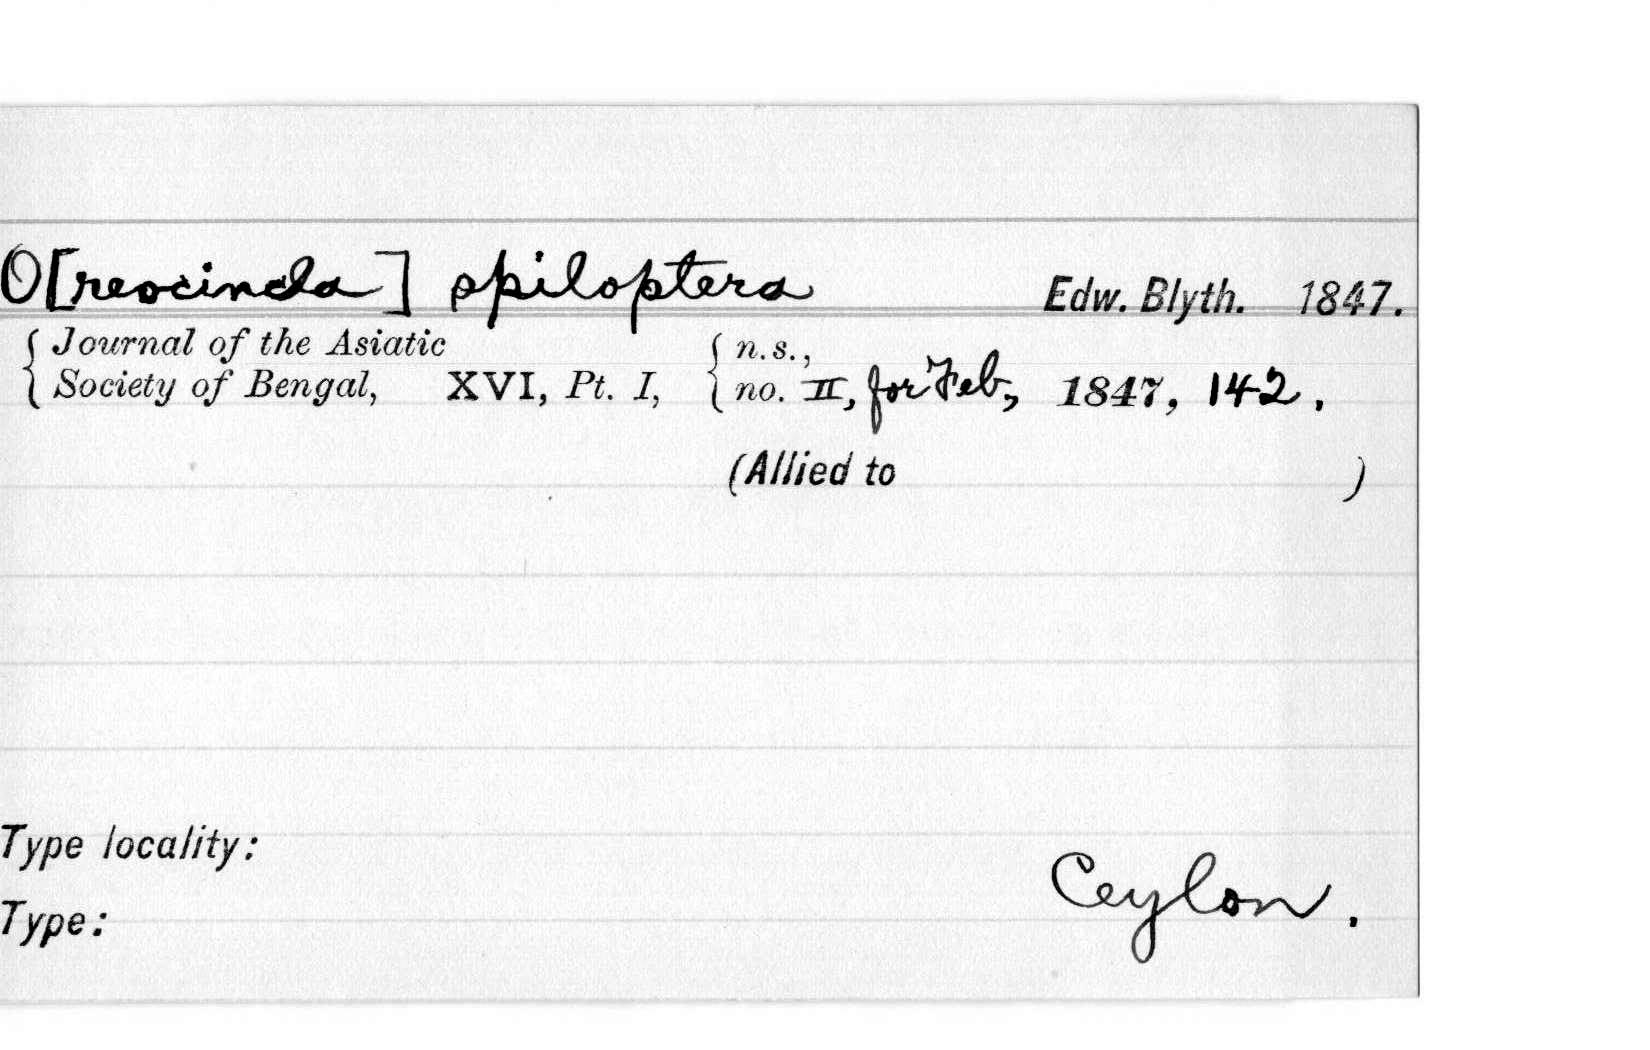 O[reocincla] spiloptera Edw. Blyth. 1847.
Journal of the Asiatic n.s.,
Society of Bengal, XVI, Pt. I, no. II, for Feb, 1847, 142.
(Allied to )
Type locality:
Ceylon.
Type: